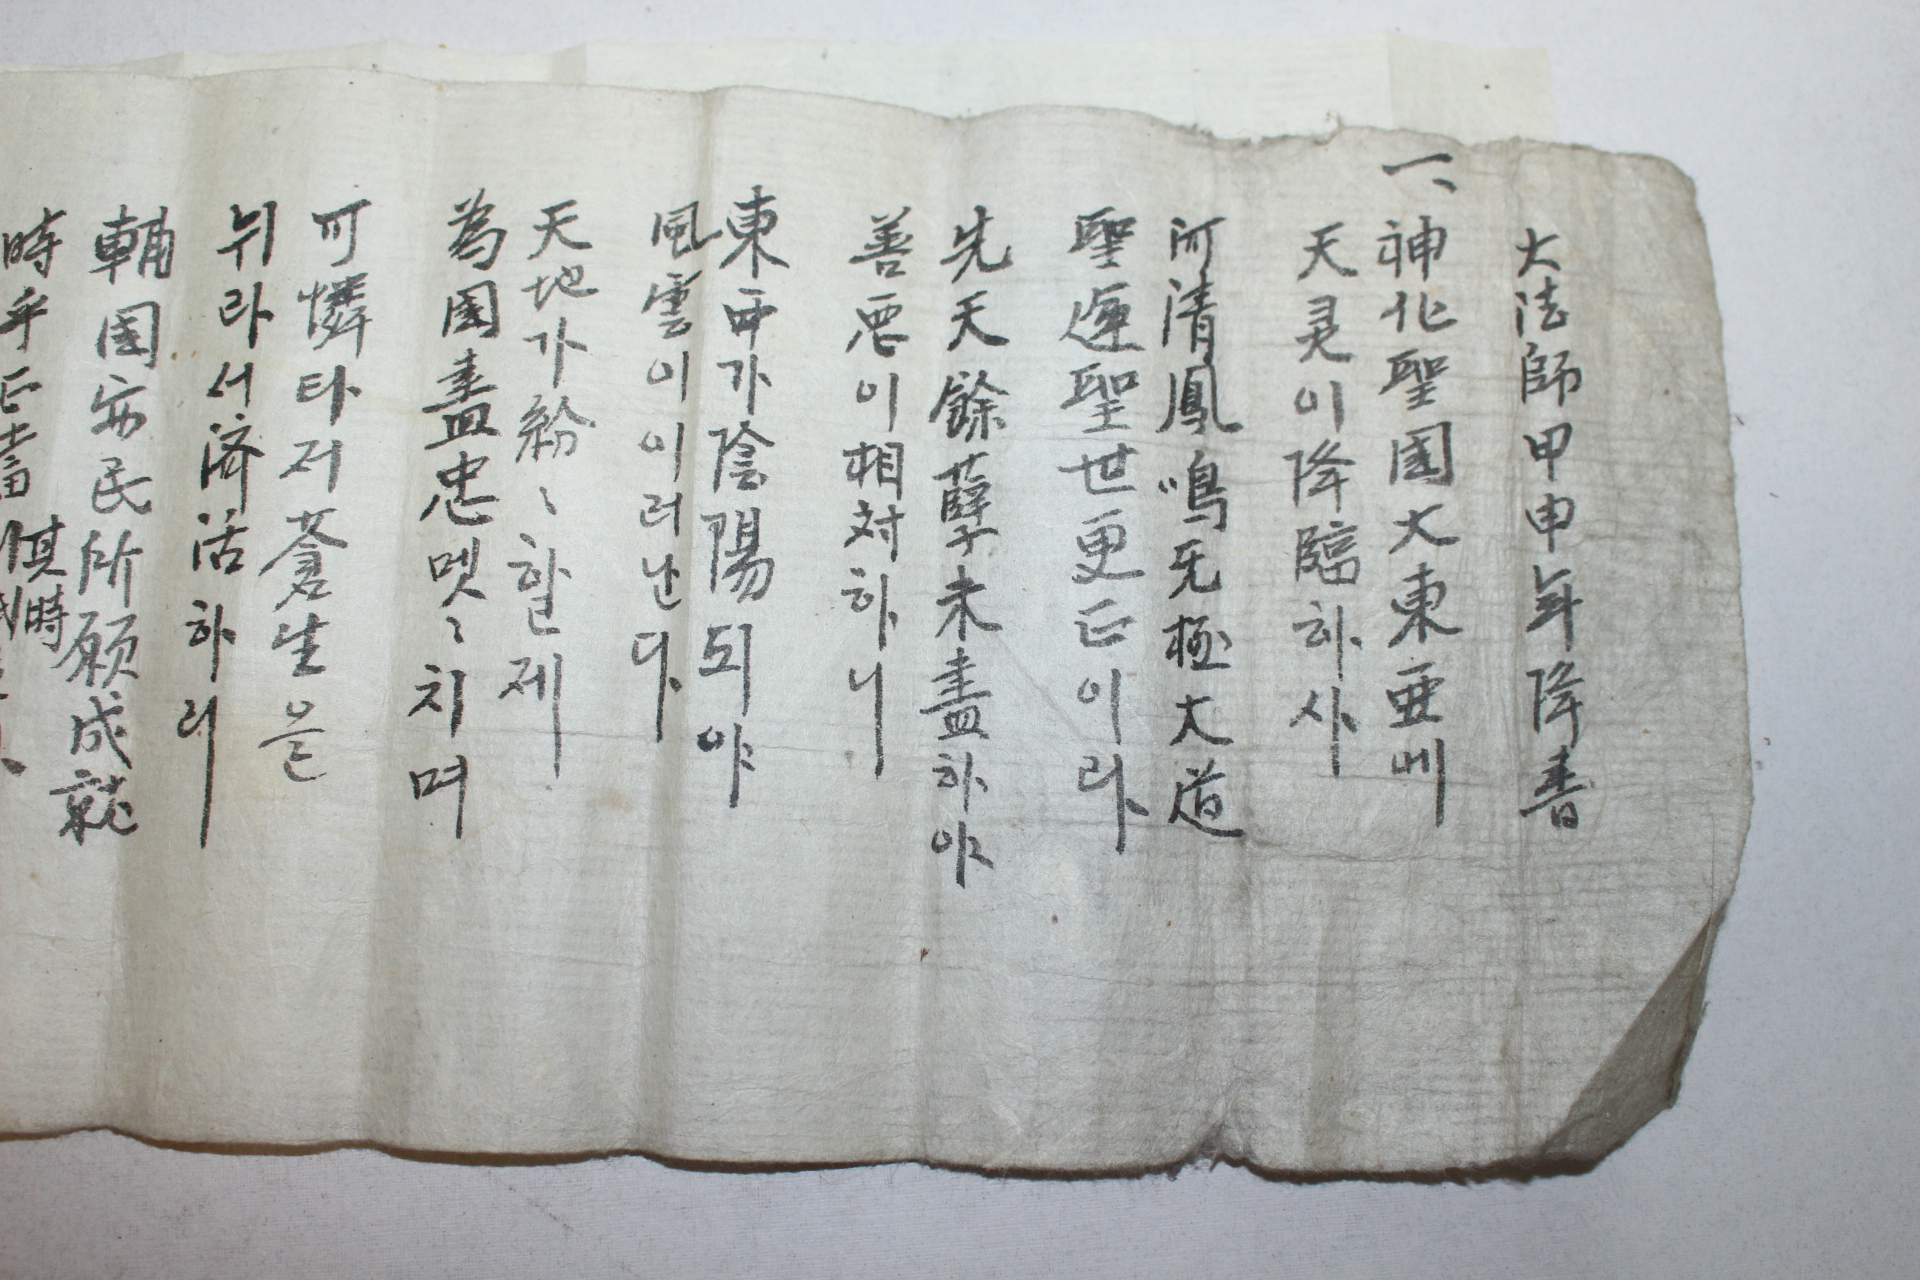 大法師甲申年降書
一、神化聖國大東亜에
天灵이降臨하사
河清鳳鳴无極大道
聖運聖世更正이라
先天餘孽未盡하야
善悪이相対하니
東西가陰陽되야
風雲이이러난다
天地가紛〻할제
為國盡忠몟〻치며
可憐타저蒼生을
뉘라서済活하리
輔國安民所願成就
時乎
倶時